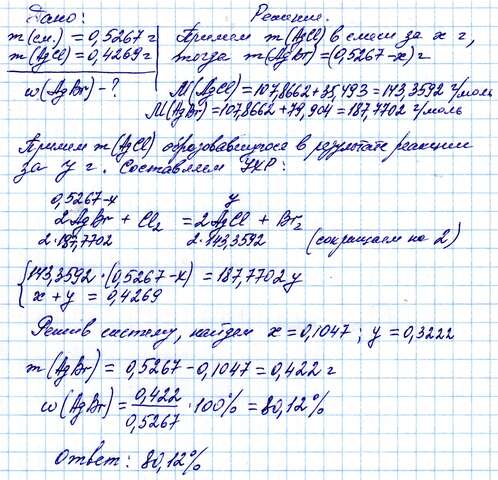 Дано:
m(см.) = 0,5267 г
m(AgCl) = 0,4269 г
w(AgBr) - ?
Решение.
Примем m(AgCl) в смеси за x г,
тогда m(AgBr) = (0,5267-x) г
M(AgCl) = 107,8662 + 35,493 = 143,3592 г/моль
M(AgBr) = 107,8662 + 79,904 = 187,7702 г/моль
Примем m(AgCl) образовавшегося в результате реакции
за y г. Составляем УХР:
0,5267-x y
2AgBr + Cl₂ = 2AgCl + Br₂
2·187,7702 2·143,3592 (сокращаем на 2)
{ 143,3592·(0,5267-x) = 187,7702y
x + y = 0,4269
Решив систему, найдем x = 0,1047; y = 0,3222
m(AgBr) = 0,5267 - 0,1047 = 0,422 г
w(AgBr) = 0,422/0,5267 · 100% = 80,12%
Ответ: 80,12%